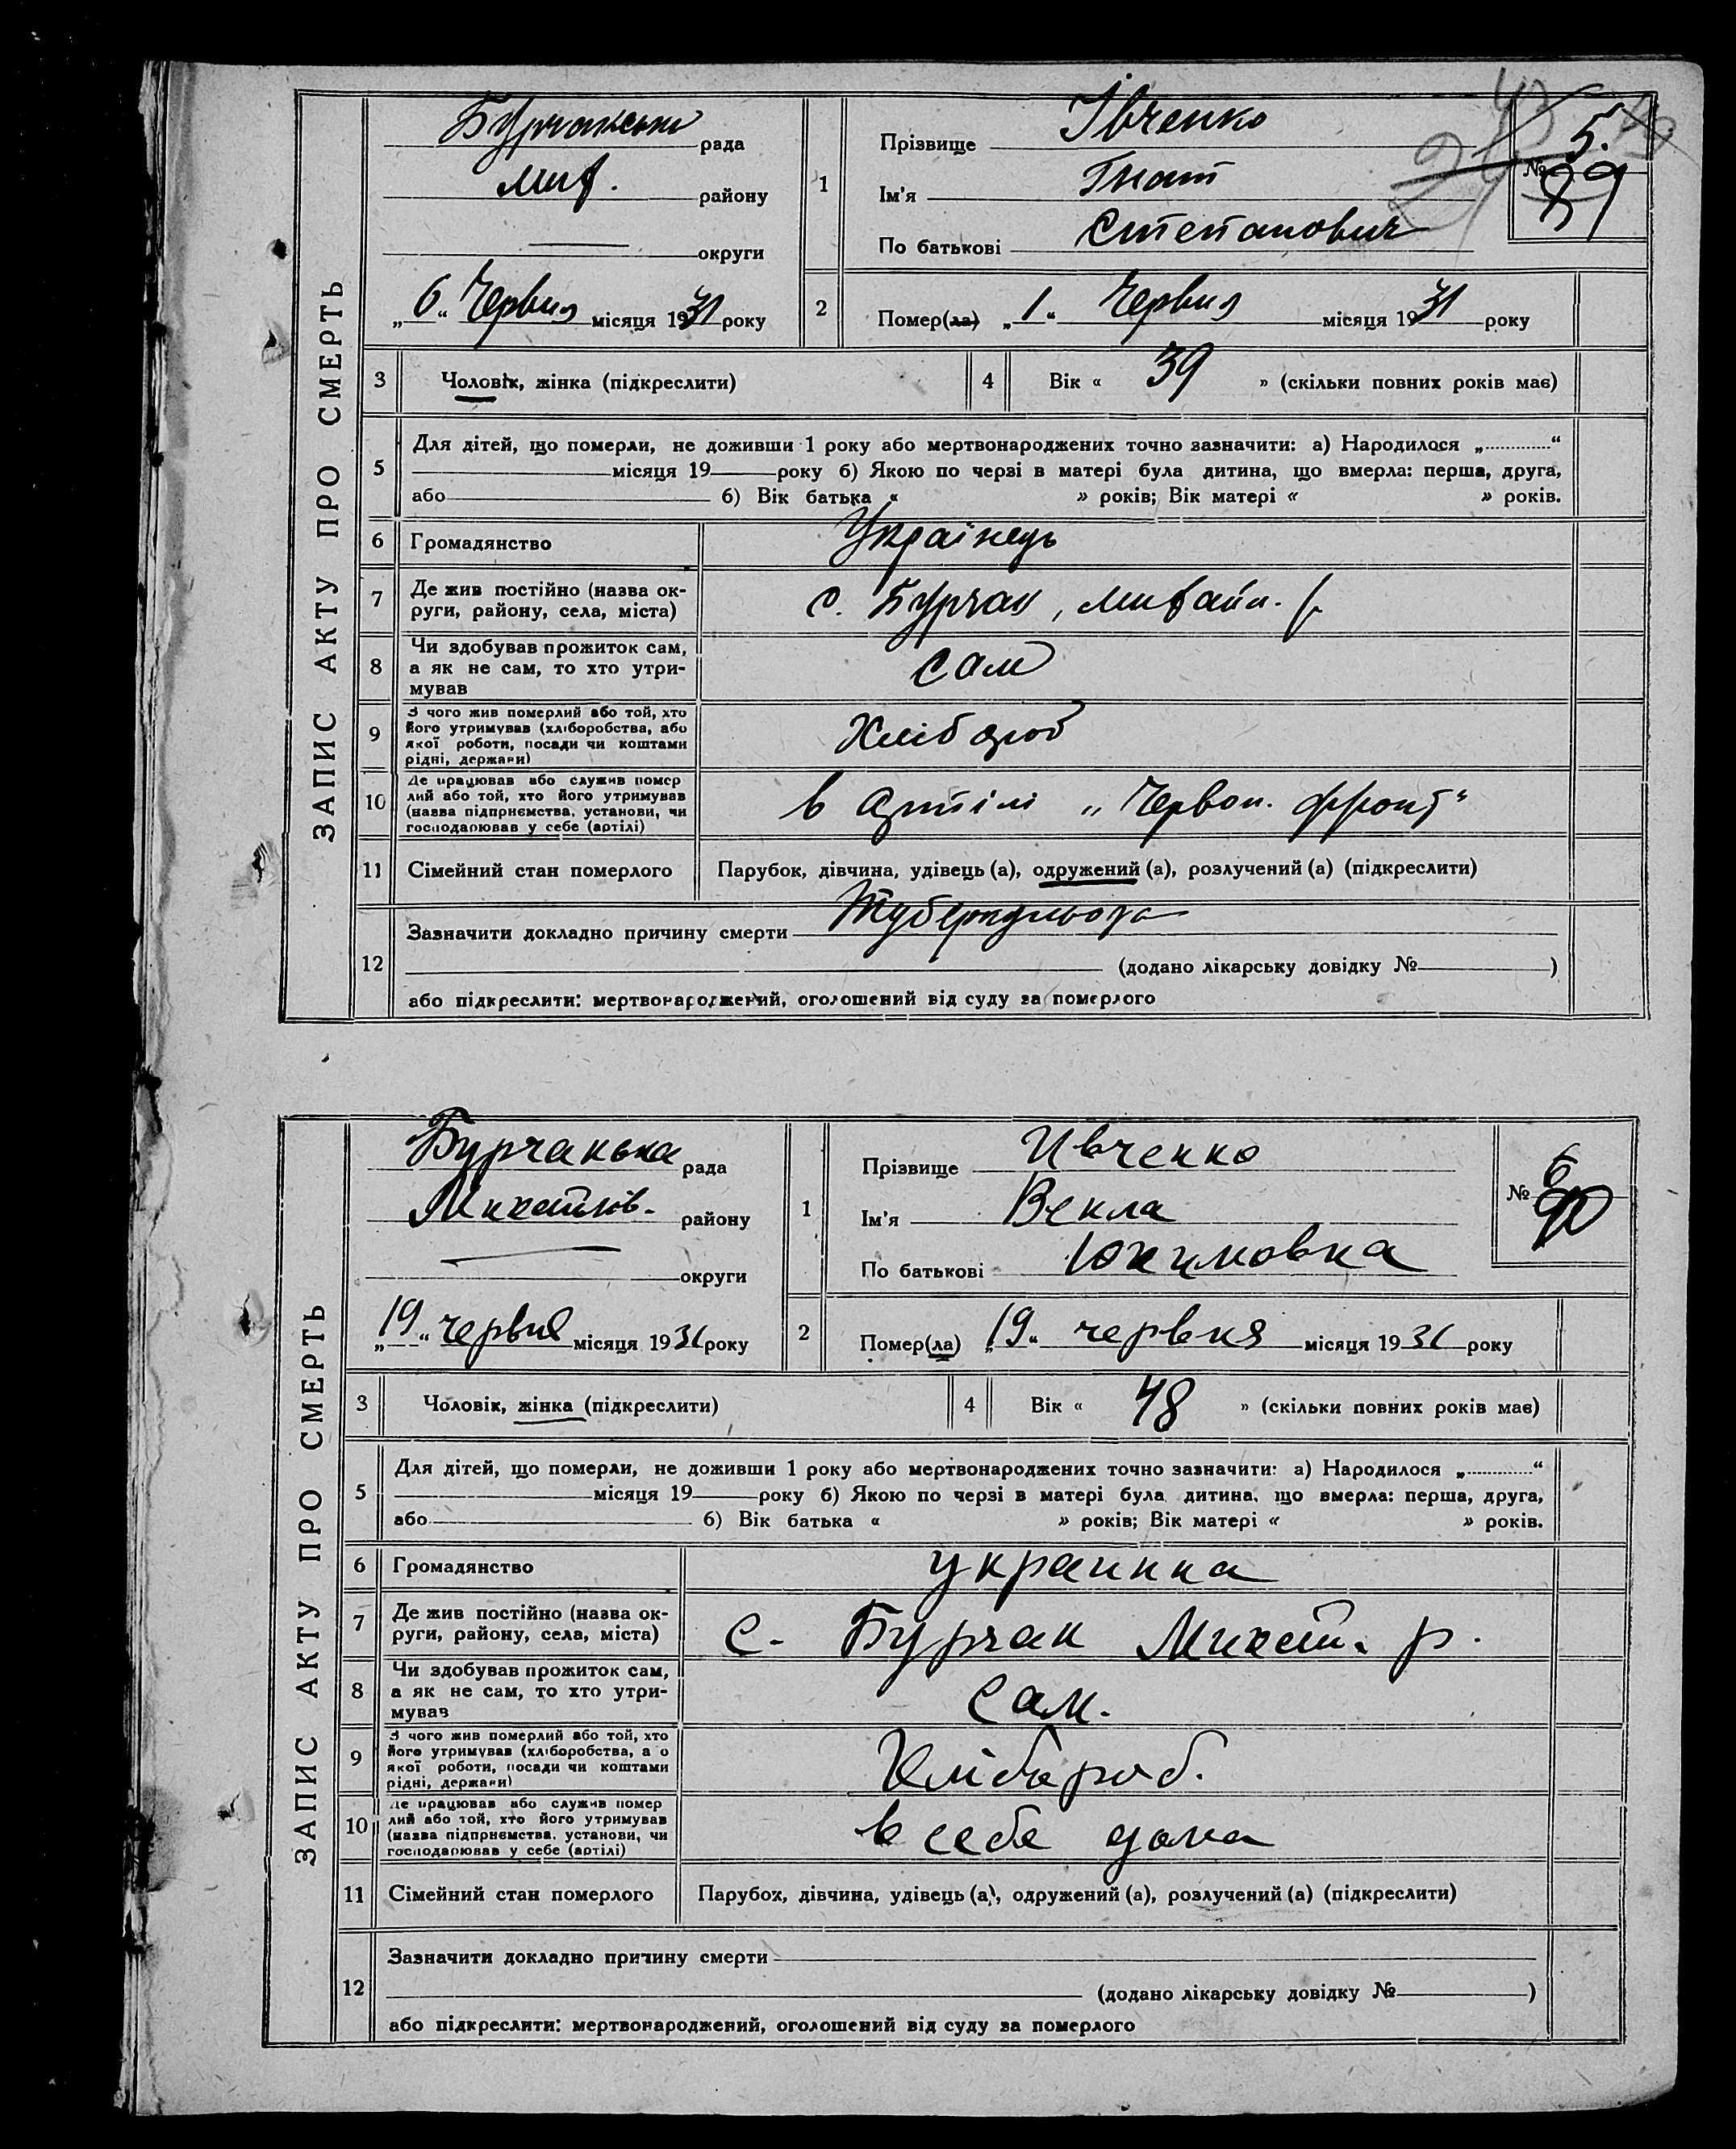 ЗАПИС АКТУ ПРО СМЕРТЬ
Бурчанська рада
Мих. району
округи
„6“ Червня місяця 1931 року
1
Прізвище Івченко
Ім'я Гнат
По батькові Степанович
5.
№ 89
2
Помер(ла) „1“ Червня місяця 1931 року
3 Чоловік, жінка (підкреслити)
4 Вік « 39 » (скільки повних років має)
5
Для дітей, що померли, не доживши 1 року або мертвонароджених точно зазначити: а) Народилося „ “
місяця 19 року б) Якою по черзі в матері була дитина, що вмерла: перша, друга,
або б) Вік батька « » років; Вік матері « » років.
6 Громадянство Українець
7
Де жив постійно (назва ок-
руги, району, села, міста)
с. Бурчак, Михайл. р.
8
Чи здобував прожиток сам,
а як не сам, то хто утри-
мував
сам
9
З чого жив померлий або той, хто
його утримував (хліборобства, або
якої роботи, посади чи коштами
рідні, держави)
Хлібороб
10
Де працював або служив помер
лий або той, хто його утримував
(назва підприємства, установи, чи
господарював у себе (артілі)
в артілі „Червон. фронт“
11 Сімейний стан померлого Парубок, дівчина, удівець (а), одружений (а), розлучений (а) (підкреслити)
12
Зазначити докладно причину смерти Туберкульоза
(додано лікарську довідку № )
або підкреслити: мертвонароджений, оголошений від суду за померлого
ЗАПИС АКТУ ПРО СМЕРТЬ
Бурчанька рада
Михайлів. району
округи
„19“ червня місяця 1931 року
1
Прізвище Ивченко
Ім'я Векла
По батькові Юхимовна
6
№ 90
2
Помер(ла) „19“ червня місяця 1931 року
3 Чоловік, жінка (підкреслити)
4 Вік « 48 » (скільки повних років має)
5
Для дітей, що померли, не доживши 1 року або мертвонароджених точно зазначити: а) Народилося „ “
місяця 19 року б) Якою по черзі в матері була дитина, що вмерла: перша, друга,
або б) Вік батька « » років; Вік матері « » років.
6 Громадянство украинка
7
Де жив постійно (назва ок-
руги, району, села, міста)
с. Бурчак Михайл. р.
8
Чи здобував прожиток сам,
а як не сам, то хто утри-
мував
Сам.
9
З чого жив померлий або той, хто
його утримував (хліборобства, а о
якої роботи, посади чи коштами
рідні, держави)
Хлібороб.
10
Де працював або служив помер
лий або той, хто його утримував
(назва підприємства, установи, чи
господарював у себе (артілі)
в себе дома
11 Сімейний стан померлого Парубок, дівчина, удівець (а), одружений (а), розлучений (а) (підкреслити)
12
Зазначити докладно причину смерти
(додано лікарську довідку № )
або підкреслити: мертвонароджений, оголошений від суду за померлого